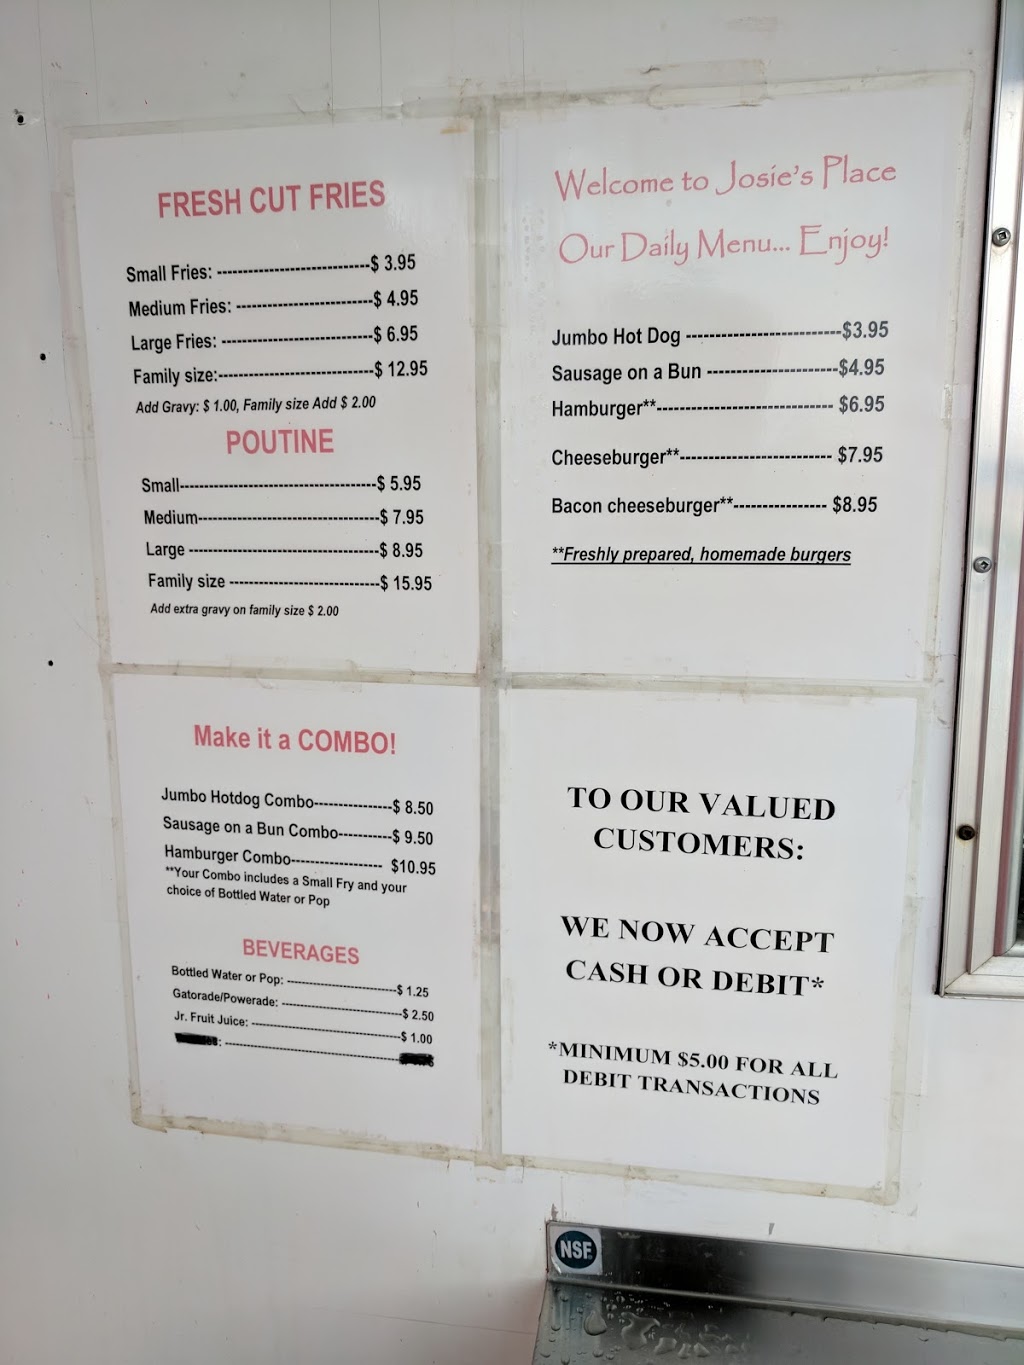 FRESH CUT FRIES
Small Fries: ----------------------------$ 3.95
Medium Fries: -------------------------$ 4.95
Large Fries: ----------------------------$ 6.95
Family size:-----------------------------$ 12.95
Add Gravy: $ 1.00, Family size Add $ 2.00
POUTINE
Small------------------------------------$ 5.95
Medium---------------------------------$ 7.95
Large -----------------------------------$ 8.95
Family size ----------------------------$ 15.95
Add extra gravy on family size $ 2.00
Welcome to Josie's Place
Our Daily Menu... Enjoy!
Jumbo Hot Dog ----------------------------$3.95
Sausage on a Bun -----------------------$4.95
Hamburger**-------------------------------- $6.95
Cheeseburger**---------------------------- $7.95
Bacon cheeseburger**----------------- $8.95
**Freshly prepared, homemade burgers
Make it a COMBO!
Jumbo Hotdog Combo---------------$ 8.50
Sausage on a Bun Combo----------$ 9.50
Hamburger Combo------------------ $10.95
**Your Combo includes a Small Fry and your
choice of Bottled Water or Pop
BEVERAGES
Bottled Water or Pop: -------------------------$ 1.25
Gatorade/Powerade: ---------------------------$ 2.50
Jr. Fruit Juice: ----------------------------------$ 1.00
TO OUR VALUED
CUSTOMERS:
WE NOW ACCEPT
CASH OR DEBIT*
*MINIMUM $5.00 FOR ALL
DEBIT TRANSACTIONS
NSF